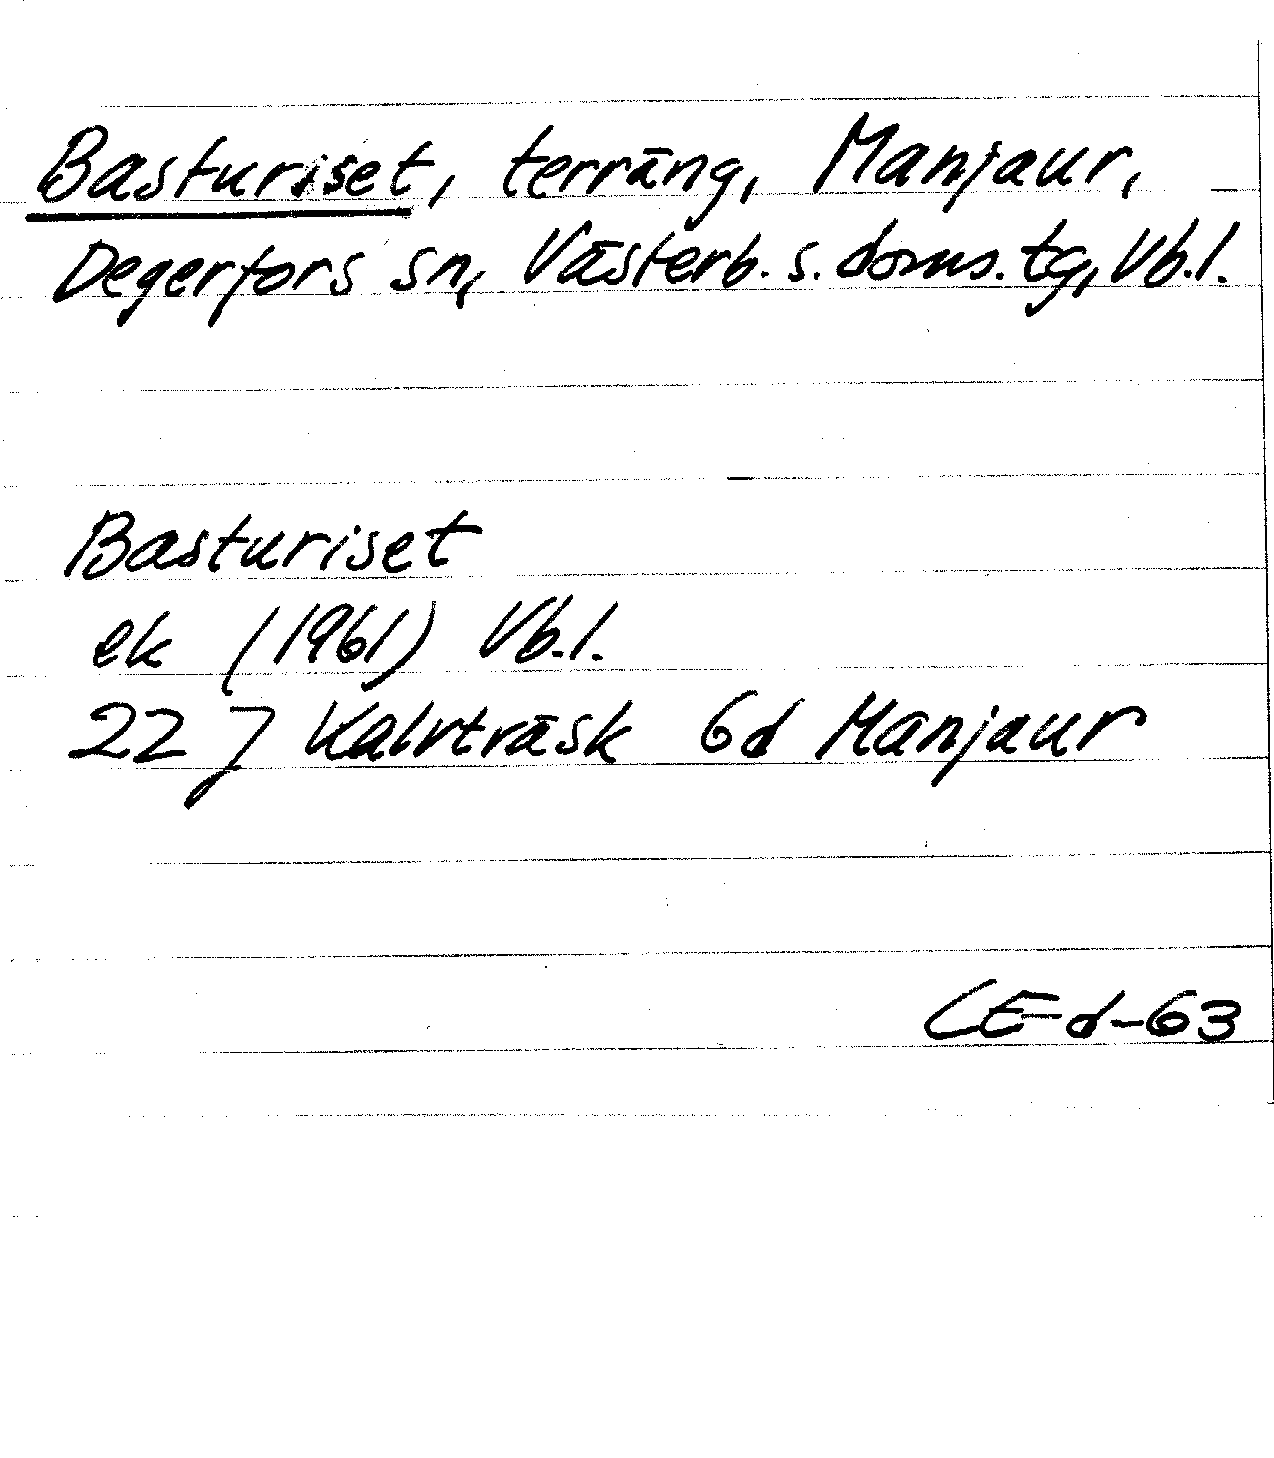 Basturiset, terräng, Manjaur,
Degerfors sn, Västerb. s. doms. tg, Vb. l.
Basturiset
ek (1961) Vb. l.
22 J Kalvträsk 6d Manjaur
CEd-63